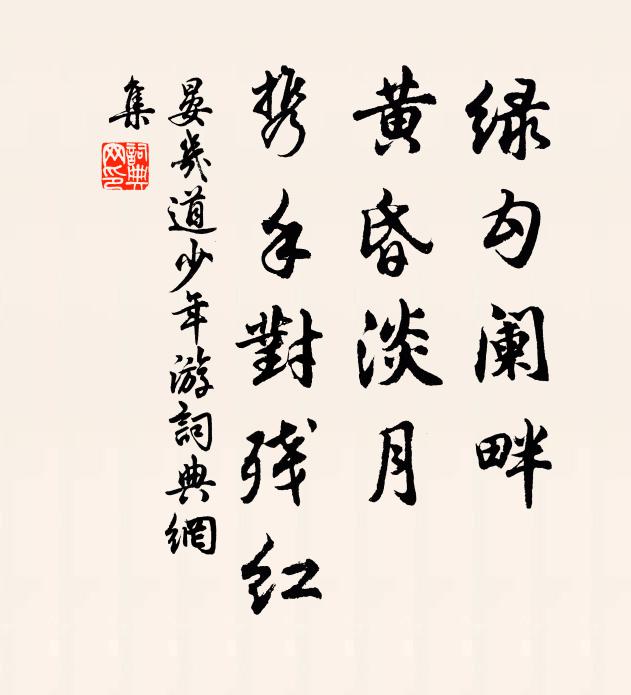 绿勾阑畔
黄昏淡月
携手對残红
晏幾道少年游詞典網
集
詞典网印